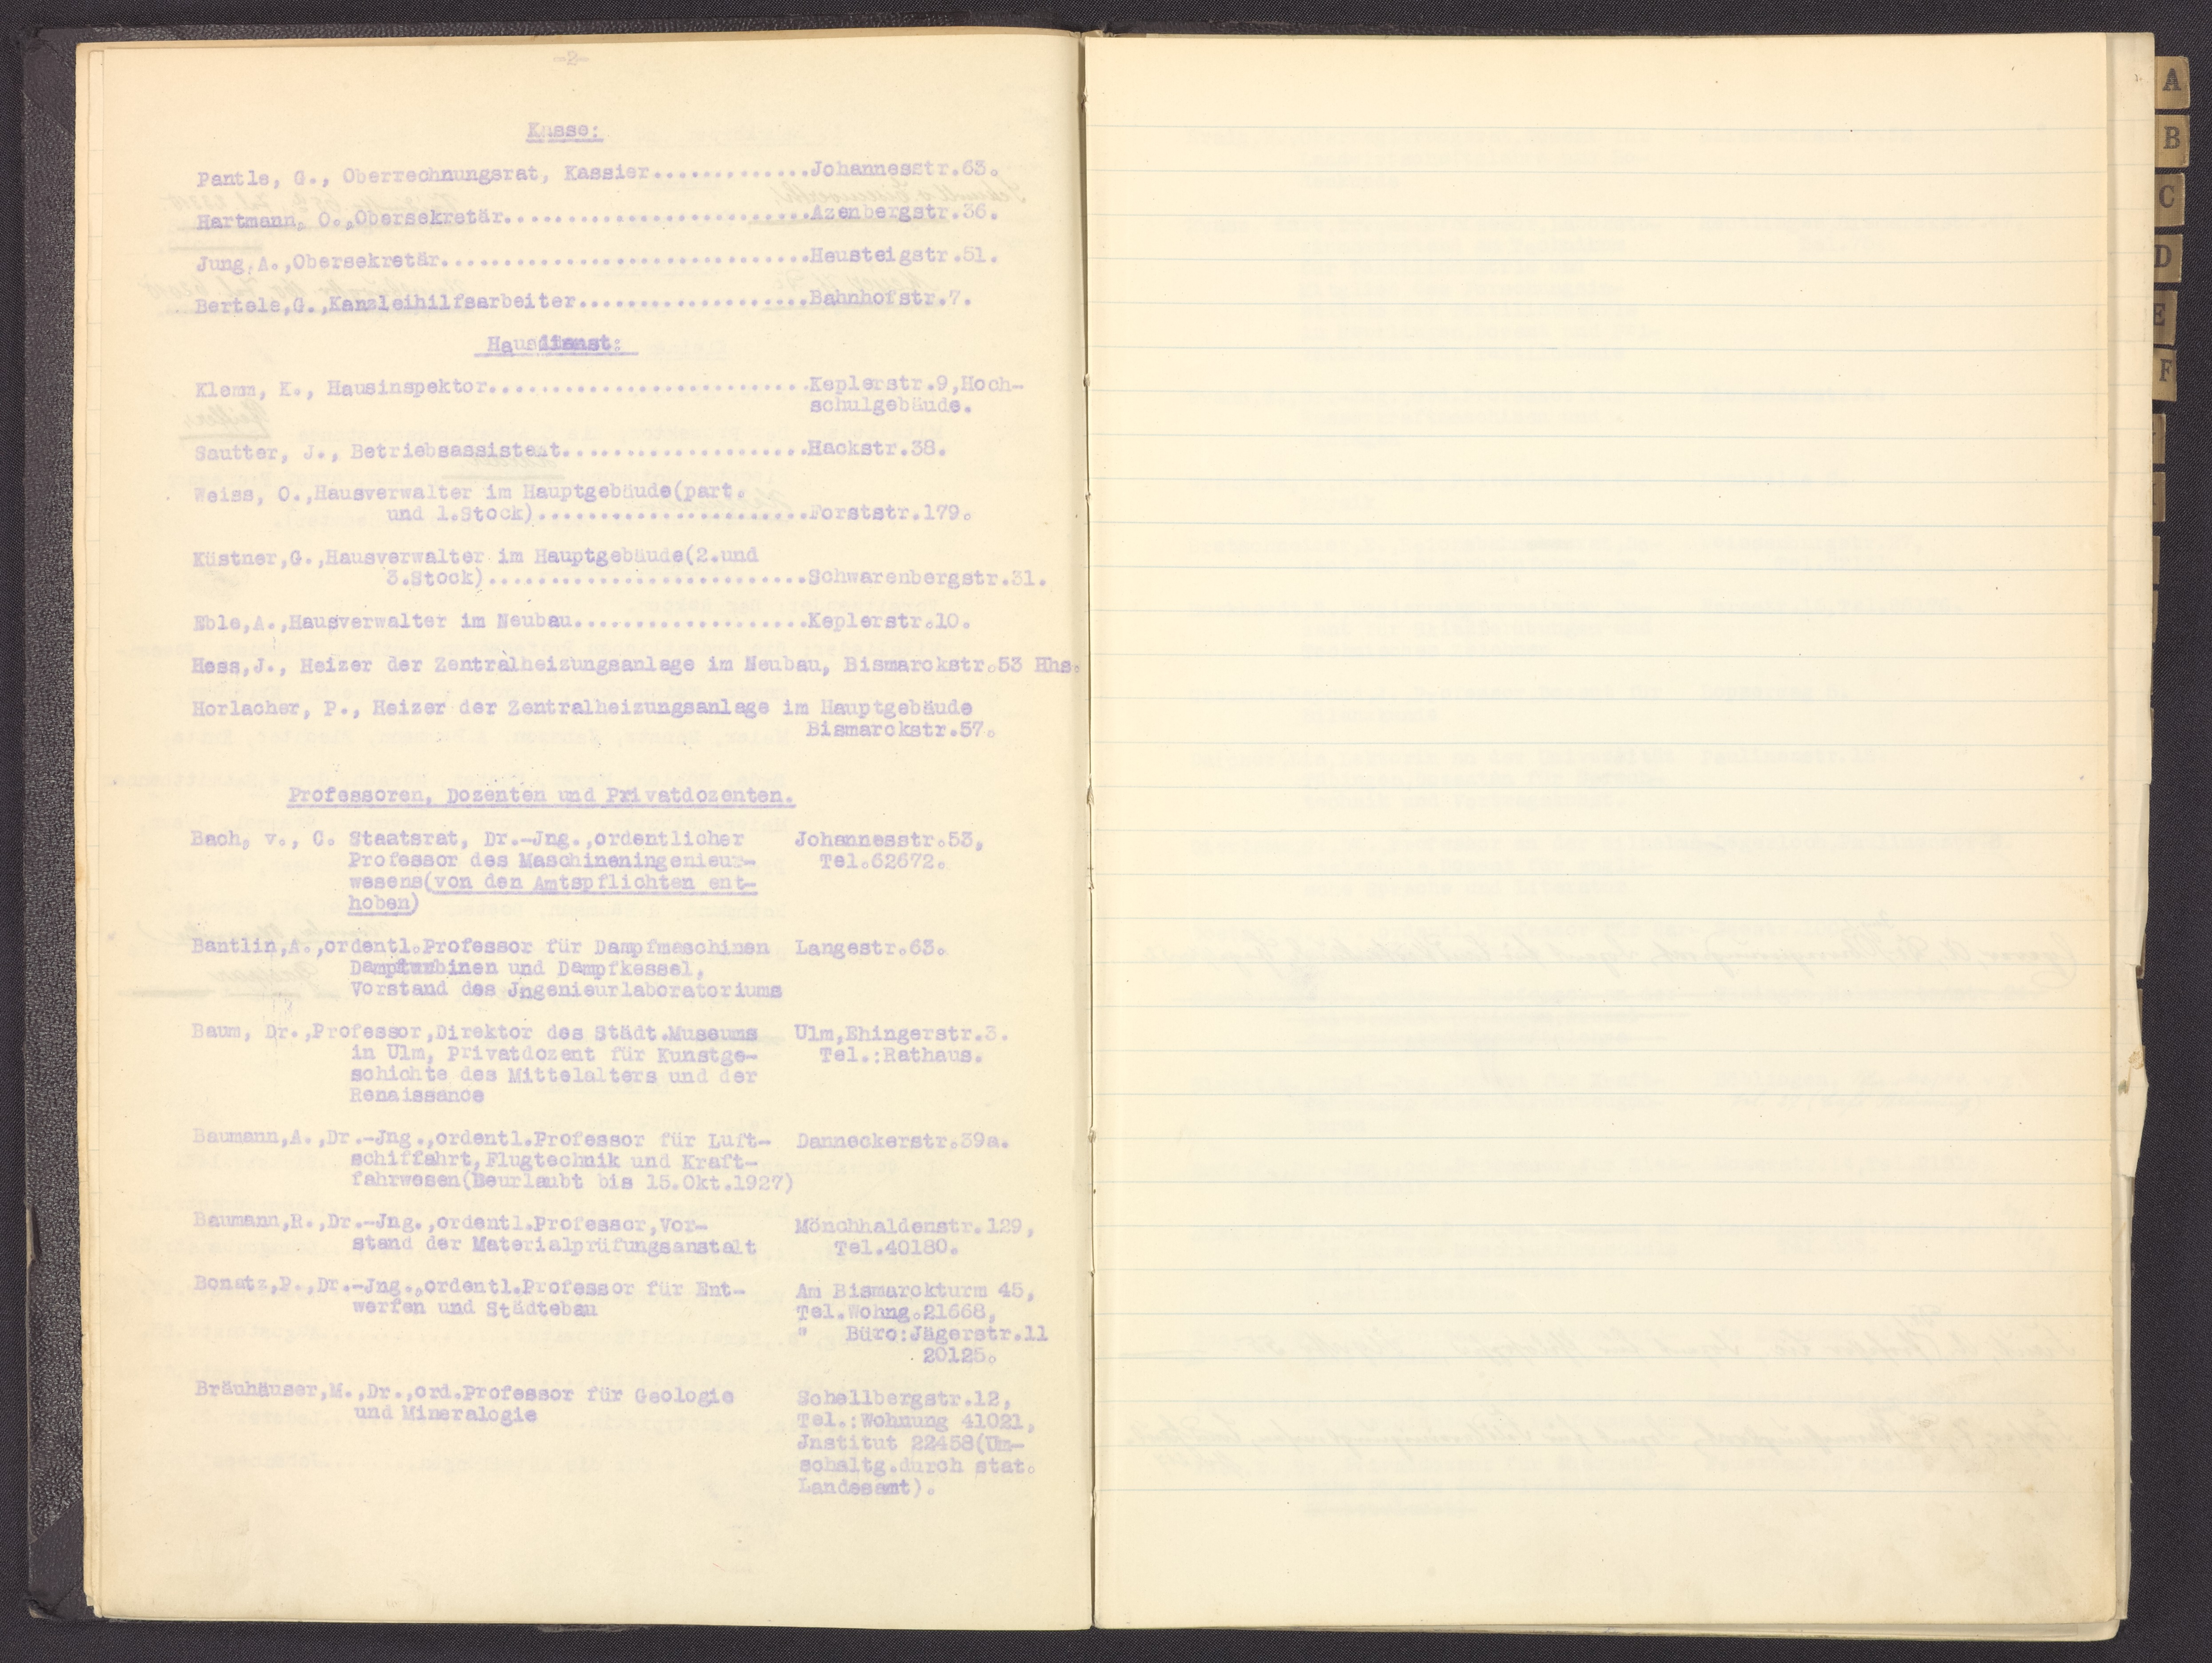 -2-
Kasse:
Pantle, G., Oberrechnungsrat, Kassier.............Johannesstr.63.
Hartmann, O.,Obersekretär.........................Azenbergstr.36.
Jung,A.,Obersekretär..............................Heusteigstr.51.
Bertele,G.,Kanzleihilfsarbeiter...................Bahnhofstr.7.
Hausdienst:
Klemm, K., Hausinspektor..........................Keplerstr.9,Hoch-
schulgebäude.
Sautter, J., Betriebsassistent....................Hackstr.38.
Weiss, O.,Hausverwalter im Hauptgebäude(part.
und 1.Stock)......................Forststr.179.
Küstner,G.,Hausverwalter im Hauptgebäude(2.und
3.Stock)..........................Schwarenbergstr.31.
Eble,A.,Hausverwalter im Neubau...................Keplerstr.10.
Hess,J., Heizer der Zentralheizungsanlage im Neubau, Bismarckstr.53 Hhs.
Horlacher, P., Heizer der Zentralheizungsanlage im Hauptgebäude
Bismarckstr.57.
Professoren, Dozenten und Privatdozenten.
Bach, v., C. Staatsrat, Dr.-Jng.,ordentlicher Johannesstr.53,
Professor des Maschineningenieur- Tel.62672.
wesens(von den Amtspflichten ent-
hoben)
Bantlin,A.,ordentl.Professor für Dampfmaschinen Langestr.63.
Dampfturbinen und Dampfkessel,
Vorstand des Jngenieurlaboratoriums
Baum, Dr.,Professor,Direktor des Städt.Museums Ulm,Ehingerstr.3.
in Ulm, Privatdozent für Kunstge- Tel.:Rathaus.
schichte des Mittelalters und der
Renaissance
Baumann,A.,Dr.-Jng.,ordentl.Professor für Luft- Danneckerstr.39a.
schiffahrt,Flugtechnik und Kraft-
fahrwesen(Beurlaubt bis 15.Okt.1927)
Baumann,R.,Dr.-Jng.,ordentl.Professor,Vor- Mönchhaldenstr.129,
stand der Materialprüfungsanstalt Tel.40180.
Bonatz,P.,Dr.-Jng.,ordentl.Professor für Ent- Am Bismarckturm 45,
werfen und Städtebau Tel.Wohng.21668,
" Büro:Jägerstr.11
20125.
Bräuhäuser,M.,Dr.,ord.Professor für Geologie Schellbergstr.12,
und Mineralogie Tel.:Wohnung 41021,
Jnstitut 22458(Um-
schaltg.durch stat.
Landesamt).
A
B
C
D
E
F